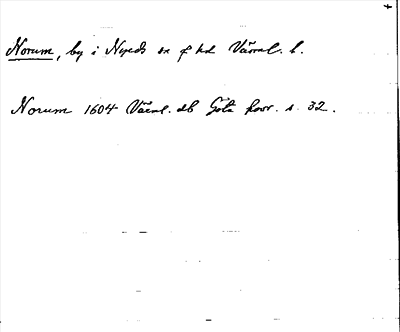 Norum, by i Nyeds sn o hd Värml. l.
Norum 1604 Värml. db Göta hovr. s. 32.